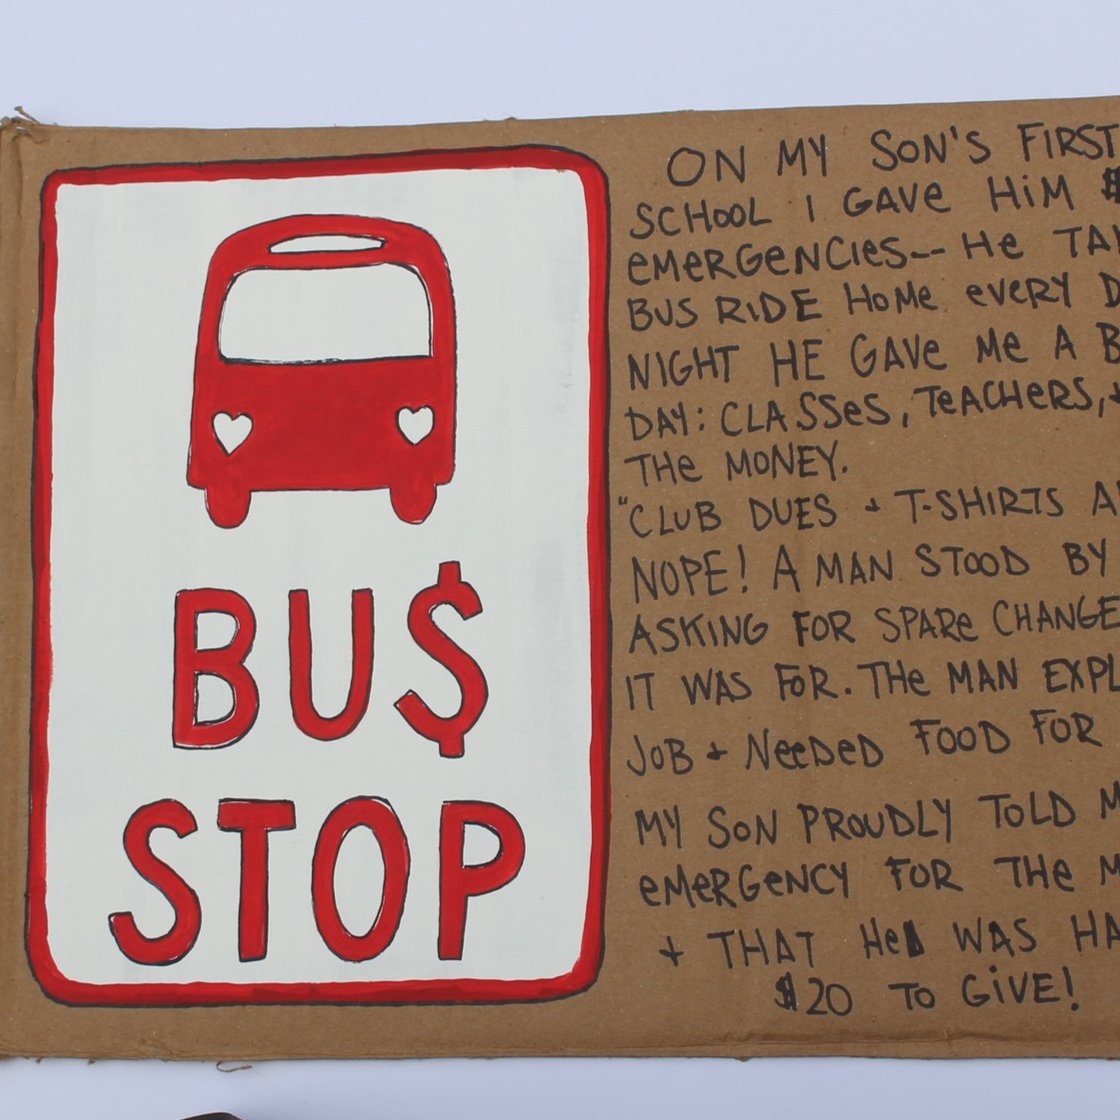 BU$
STOP
ON MY SON'S FIRST
SCHOOL I GAVE HIM $
EMERGENCIES-- HE
BUS RIDE HOME EVERY
NIGHT HE GAVE ME A
DAY: CLASSES, TEACHERS,
THE MONEY.
"CLUB DUES + T-SHIRTS
NOPE! A MAN STOOD BY
ASKING FOR SPARE CHANGE
IT WAS FOR. THE MAN
JOB + NEEDED FOOD FOR
MY SON PROUDLY TOLD
EMERGENCY FOR THE
+ THAT HE WAS
$20 TO GIVE!